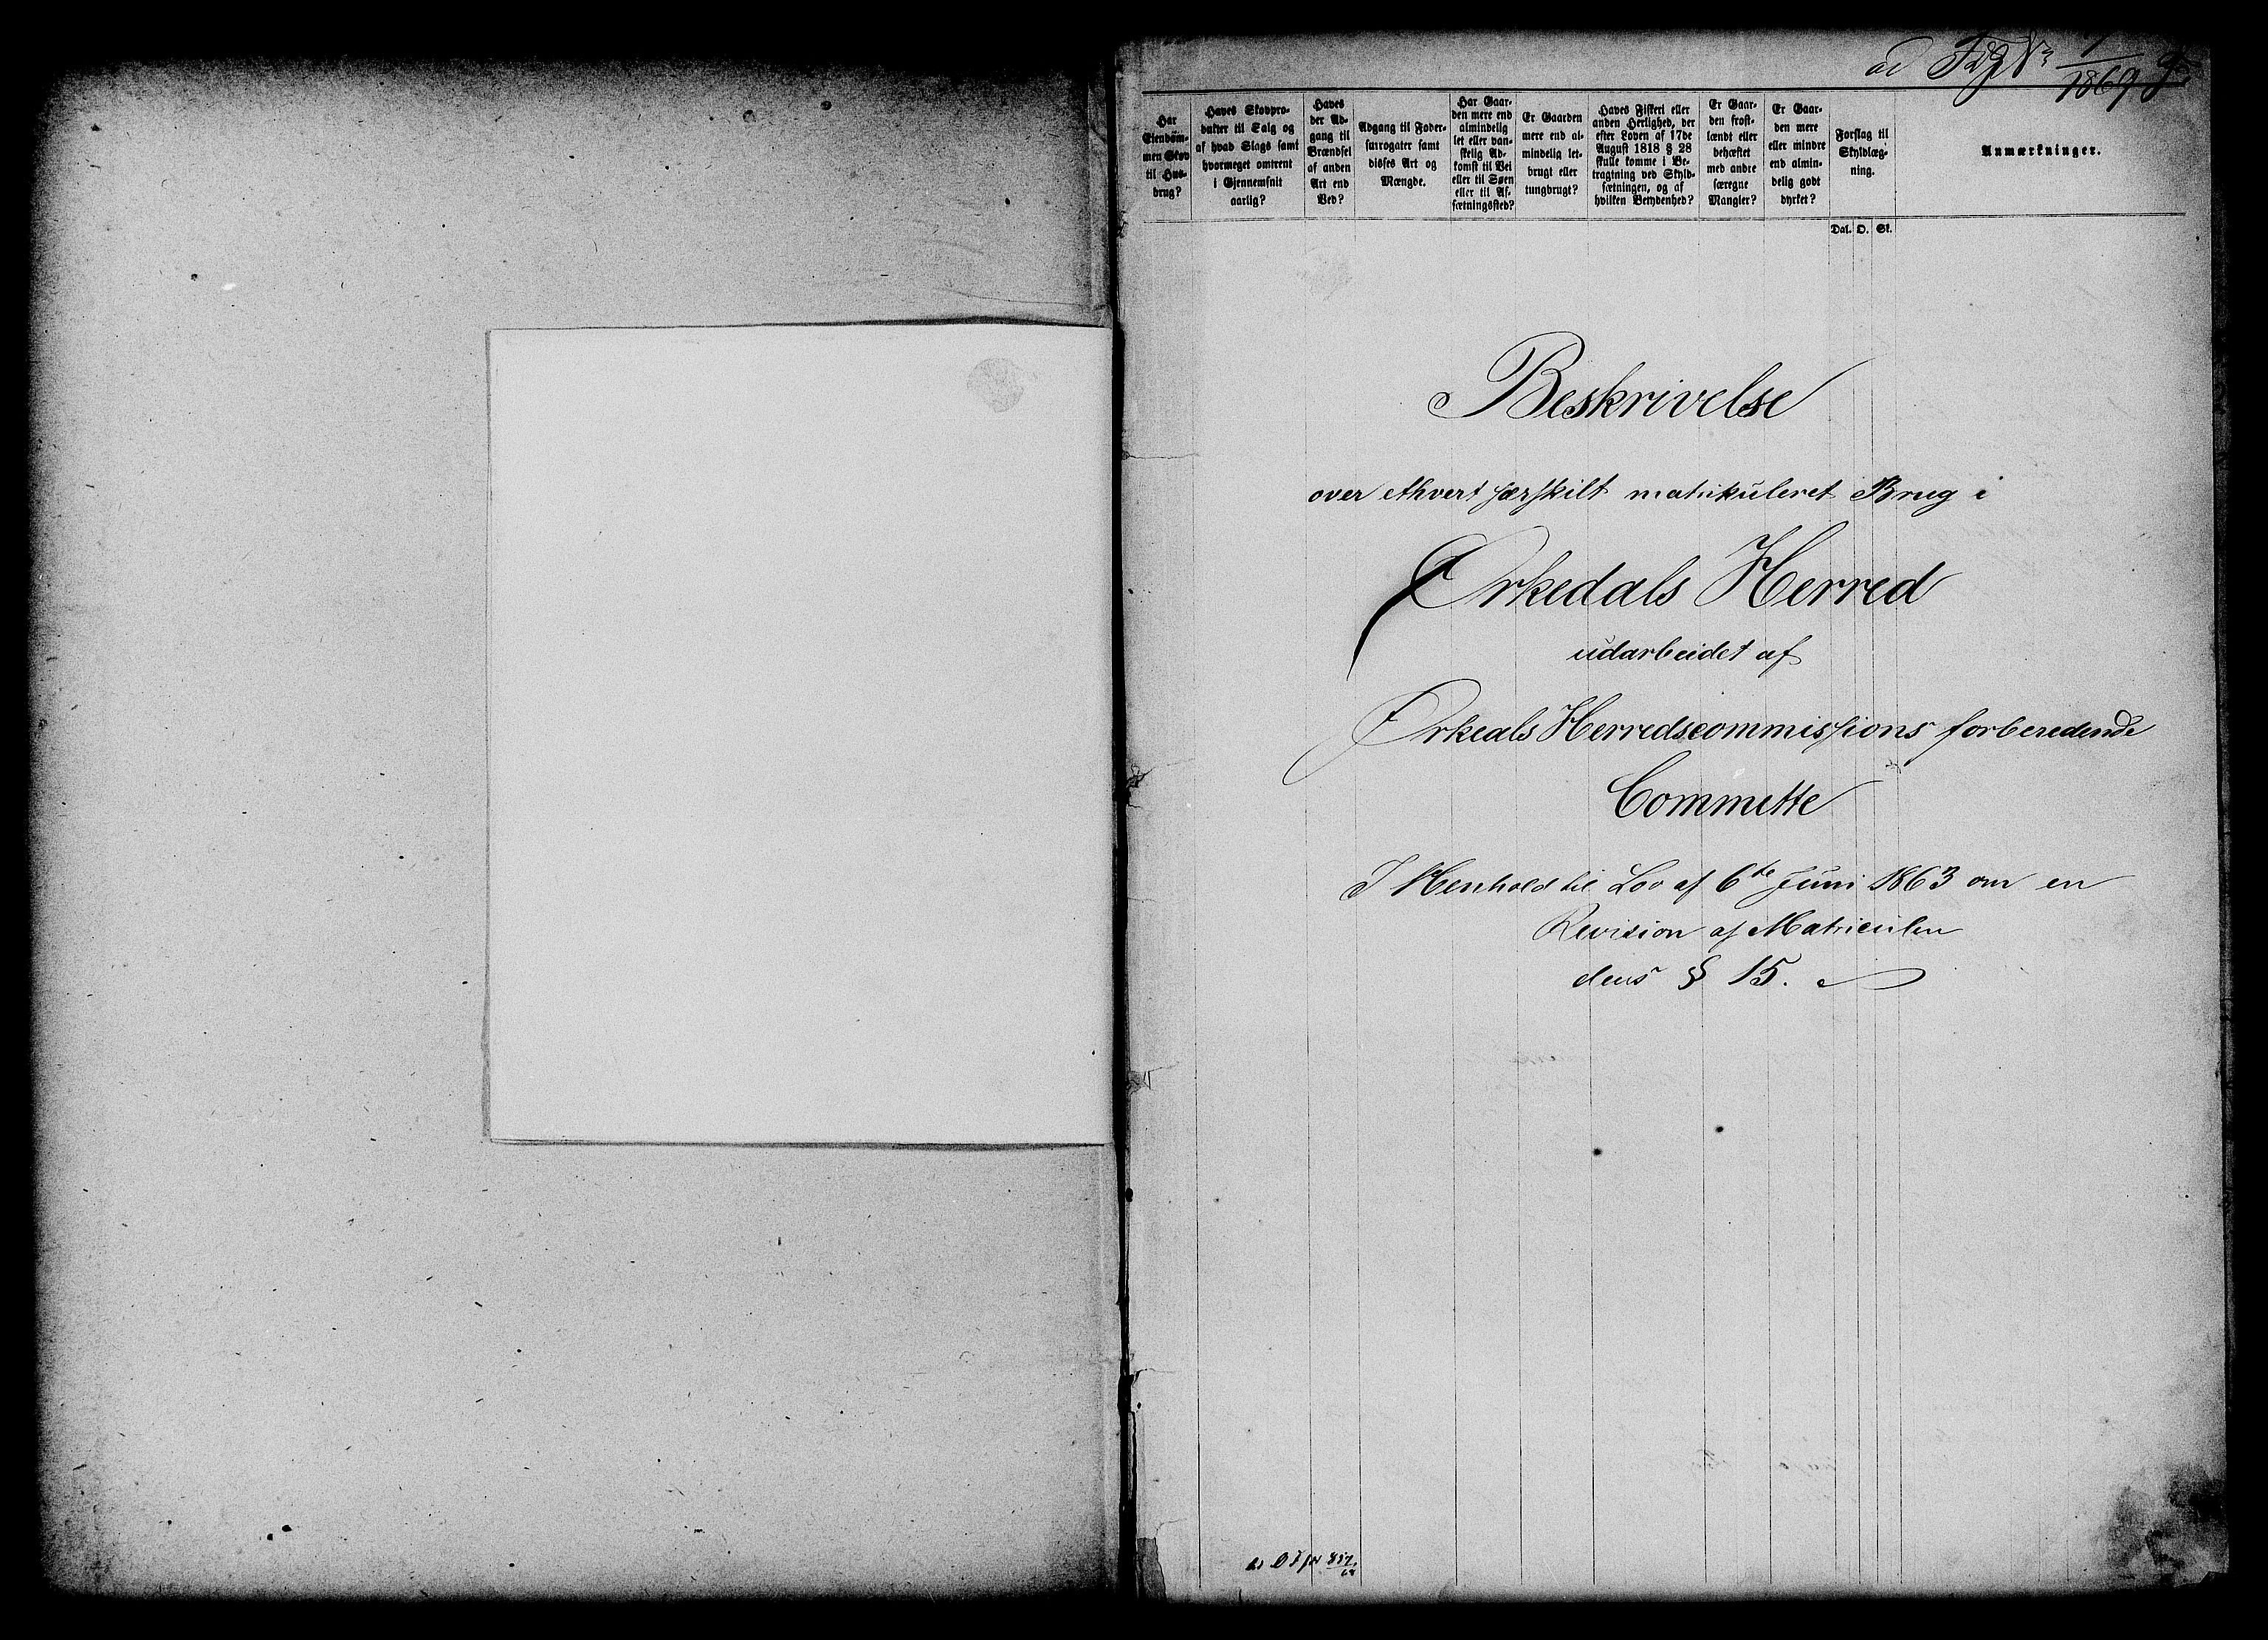 1869
Har
Eiendom-
men Skov
til Hus-
brug?
Haves Skovpro-
dukter til Salg og
af hvad Slags samt
hvormeget omtrent
i Gjennemsnit
aarlig?
Haves
der Ad-
gang til
Brændsel
af anden
Art end
Ved?
Adgang til Foder-
surrogater samt
disses Art og
Mængde.
Har Gaar-
den mere end
almindelig
let eller van-
skelig Ad-
komst til Vei
eller til Søen
eller til Af-
sætningssted?
Er Gaarden
mere end al-
mindelig let-
brugt eller
tungbrugt?
Haves Fiskeri eller
anden Herlighed, der
efter Loven af 17de
August 1818 § 28
skulle komme i Be-
tragtning ved Skyld-
sætningen, og af
hvilken Betydenhed?
Er Gaar-
den frost-
lændt eller
behæftet
med andre
særegne
Mangler?
Er Gaar-
den mere
eller mindre
end almin-
delig godt
dyrket?
Forslag til
Skyldlæg-
ning.
Anmærkninger.
Dal. O. Sk.
Beskrivelse
over ethvert særskilt matrikuleret Brug i
Ørkedals Herred
udarbeidet af
Ørkedals Herredscommissions forberedende
Committe
I Henhold til Lov af 6te Juni 1863 om en
Revision af Matriculen
dens § 15.